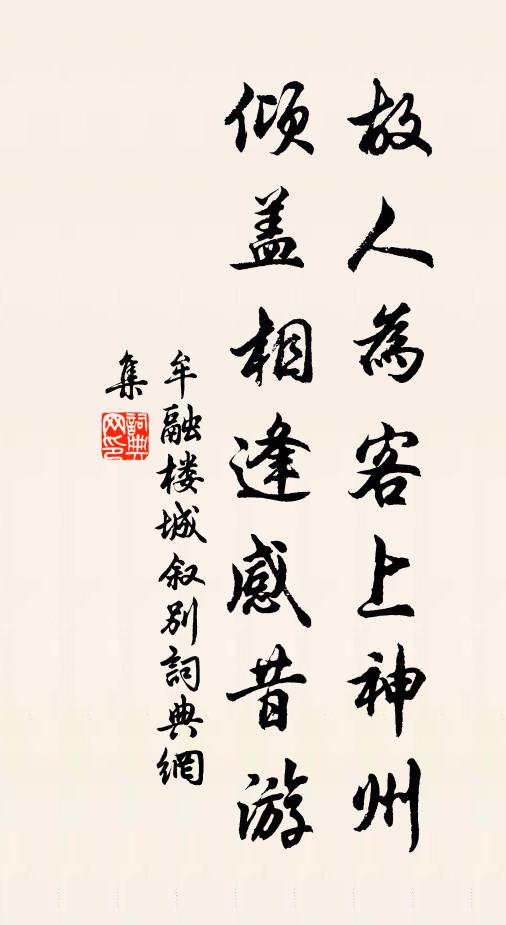 故人為客上神州
倾盖相逢感昔游
牟融楼城叙别詞典網
集
詞典网印